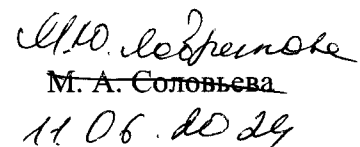 М.Ю. Лаврентьева
М. А. Соловьева
11.06.2024